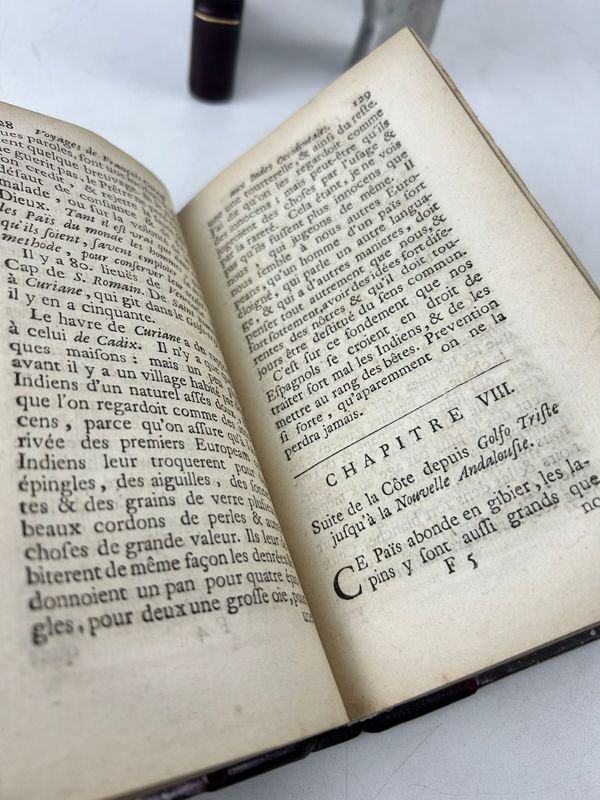 28 Voyages de François
ques paroles, font
quelque breuvage
guerit pas, le Prêtre
son credit, & rejette
défaut de confiance
malade, ou sur la volonté
Dieux. Tant il est vrai que
les Païs du monde les hommes
qu'ils soient, savent employer la
methode, pour conserver leur
Il y a 80. lieuës de
Cap de S. Romain. De Sainte
à Curiane, qui gît dans le Golfe
il y en a cinquante.
Le havre de Curiane a de
à celui de Cadix. Il n'y a que
ques maisons: mais un peu
avant il y a un village habité par
Indiens d'un naturel assés doux
que l'on regardoit comme des
cens, parce qu'on assure qu'à
rivée des premiers European
Indiens leur troquerent pour
épingles, des aiguilles, des sonnet
tes & des grains de verre plusieurs
beaux cordons de perles & autres
choses de grande valeur. Ils leur
biterent de même façon les denrées
donnoient un pan pour quatre épin
gles, pour deux une grosse oie, pour
une
aux Indes Occidentales. 129
une tourterelle, & ainsi du reste.
J'ai dit qu'on les regardoit comme
des innocens; mais peut-être qu'ils
jugeoient des choses par l'usage &
par la rareté. Cela étant, je ne vois
pas qu'ils fussent plus innocens que
nous, qui jugeons de même. Il
nous semble à nous autres Euro-
peans, qu'un homme d'un païs fort
éloigné, qui parle un autre langua-
ge, & qui a d'autres manieres, doit
penser tout autrement que nous, &
fort sottement, avoir des idées fort dife-
rentes des nôtres & qu'il doit tou-
jours être destitué du sens commun.
C'est sur ce fondement que nos
Espagnols se croient en droit de
traiter fort mal les Indiens, & de les
mettre au rang des bêtes. Prevention
si forte, qu'aparemment on ne la
perdra jamais.
CHAPITRE VIII.
Suite de la Côte depuis Golfo Triste
jusqu'à la Nouvelle Andalousie.
CE Païs abonde en gibier, les la-
pins y sont aussi grands que
F 5 no